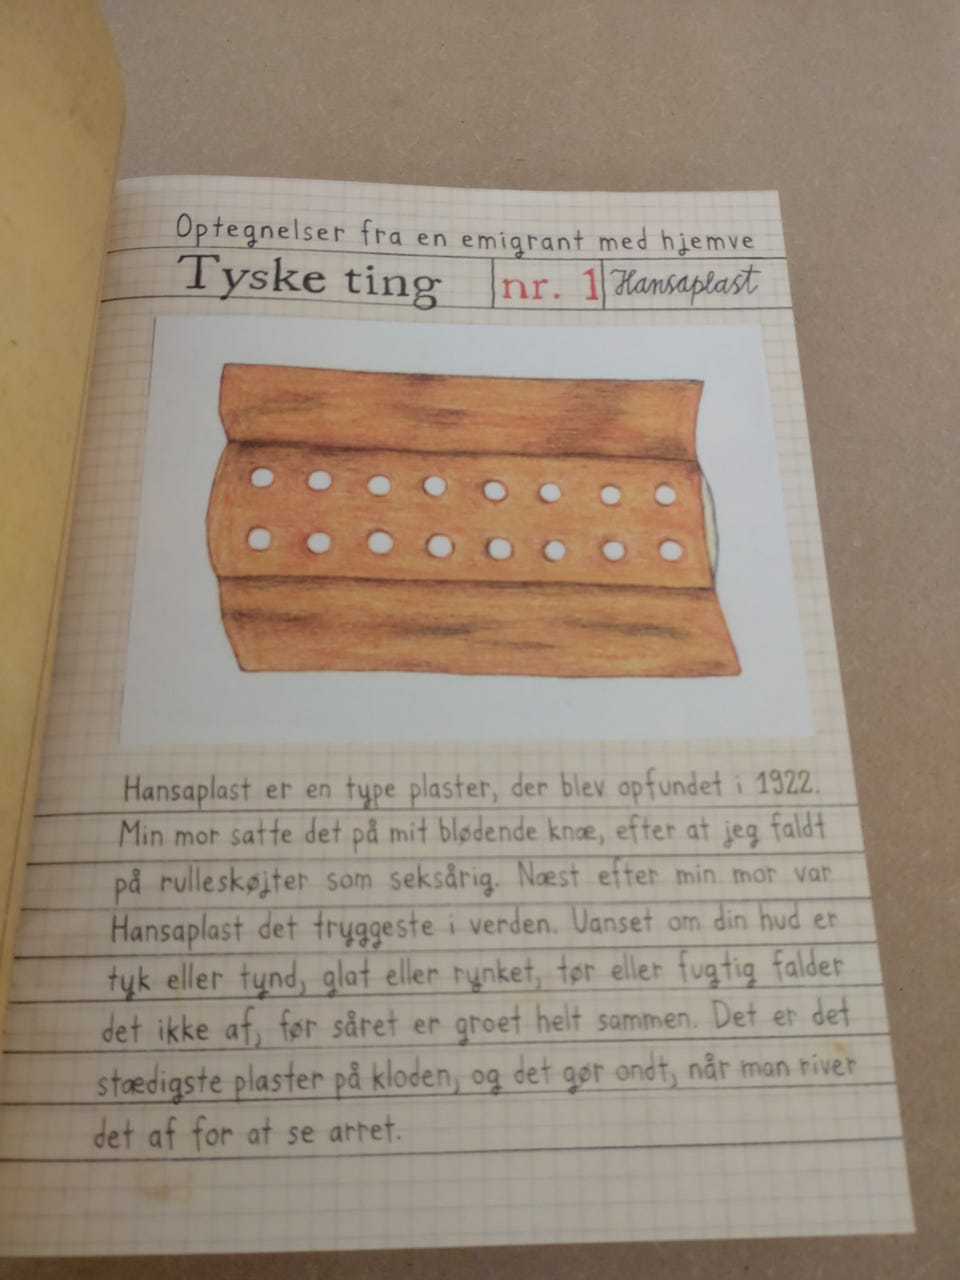 Optegnelser fra en emigrant med hjemve
Tyske ting nr. 1 Hansaplast
Hansaplast er en type plaster, der blev opfundet i 1922.
Min mor satte det på mit blødende knæ, efter at jeg faldt
på rulleskøjter som seksårig. Næst efter min mor var
Hansaplast det tryggeste i verden. Uanset om din hud er
tyk eller tynd, glat eller rynket, tør eller fugtig falder
det ikke af, før såret er groet helt sammen. Det er det
stædigste plaster på kloden, og det gør ondt, når man river
det af for at se arret.